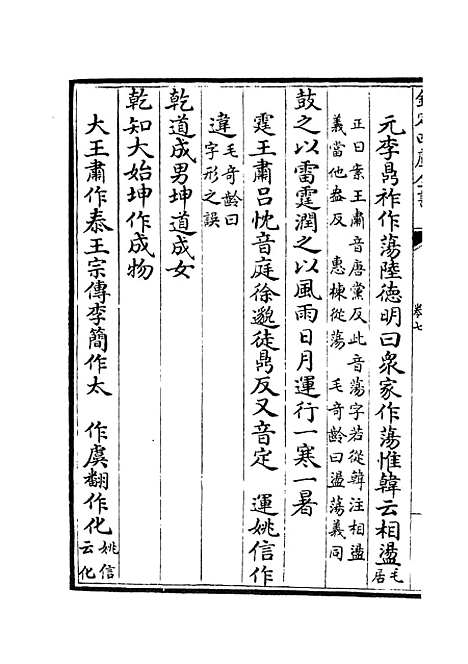 欽定四庫全書
卷七
元李鼎祚作蕩陸德明曰衆家作蕩惟韓云相盪毛居
正曰案王肅音唐黨反此音蕩字若從韓注相盪
義當他盎反 惠棟從蕩 毛奇齡曰盪蕩義同
鼓之以雷霆潤之以風雨日月運行一寒一暑
霆王肅呂忱音庭徐邈徒鼎反又音定 運姚信作
違毛奇齡曰字形之誤
乾道成男坤道成女
乾知大始坤作成物
大王肅作泰王宗傳李簡作太 作虞翻作化姚信云化